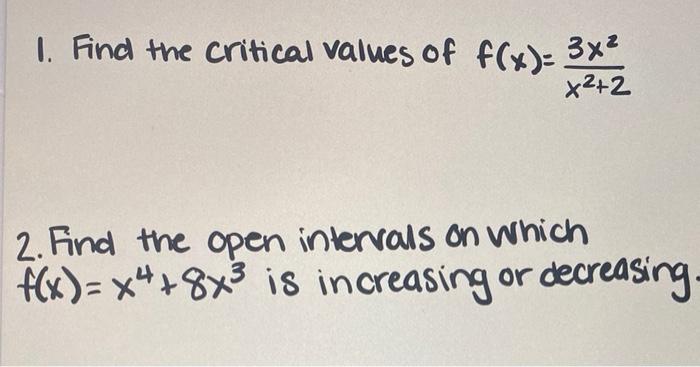 1. Find the critical values of f(x)= 3x²/x²+2
2. Find the open intervals on which
f(x)= x⁴+8x³ is increasing or decreasing.